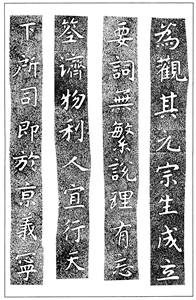 為觀其元宗生成立
要詞無繁說理有忘
筌濟物利人宜行天
下所司即放京義寧